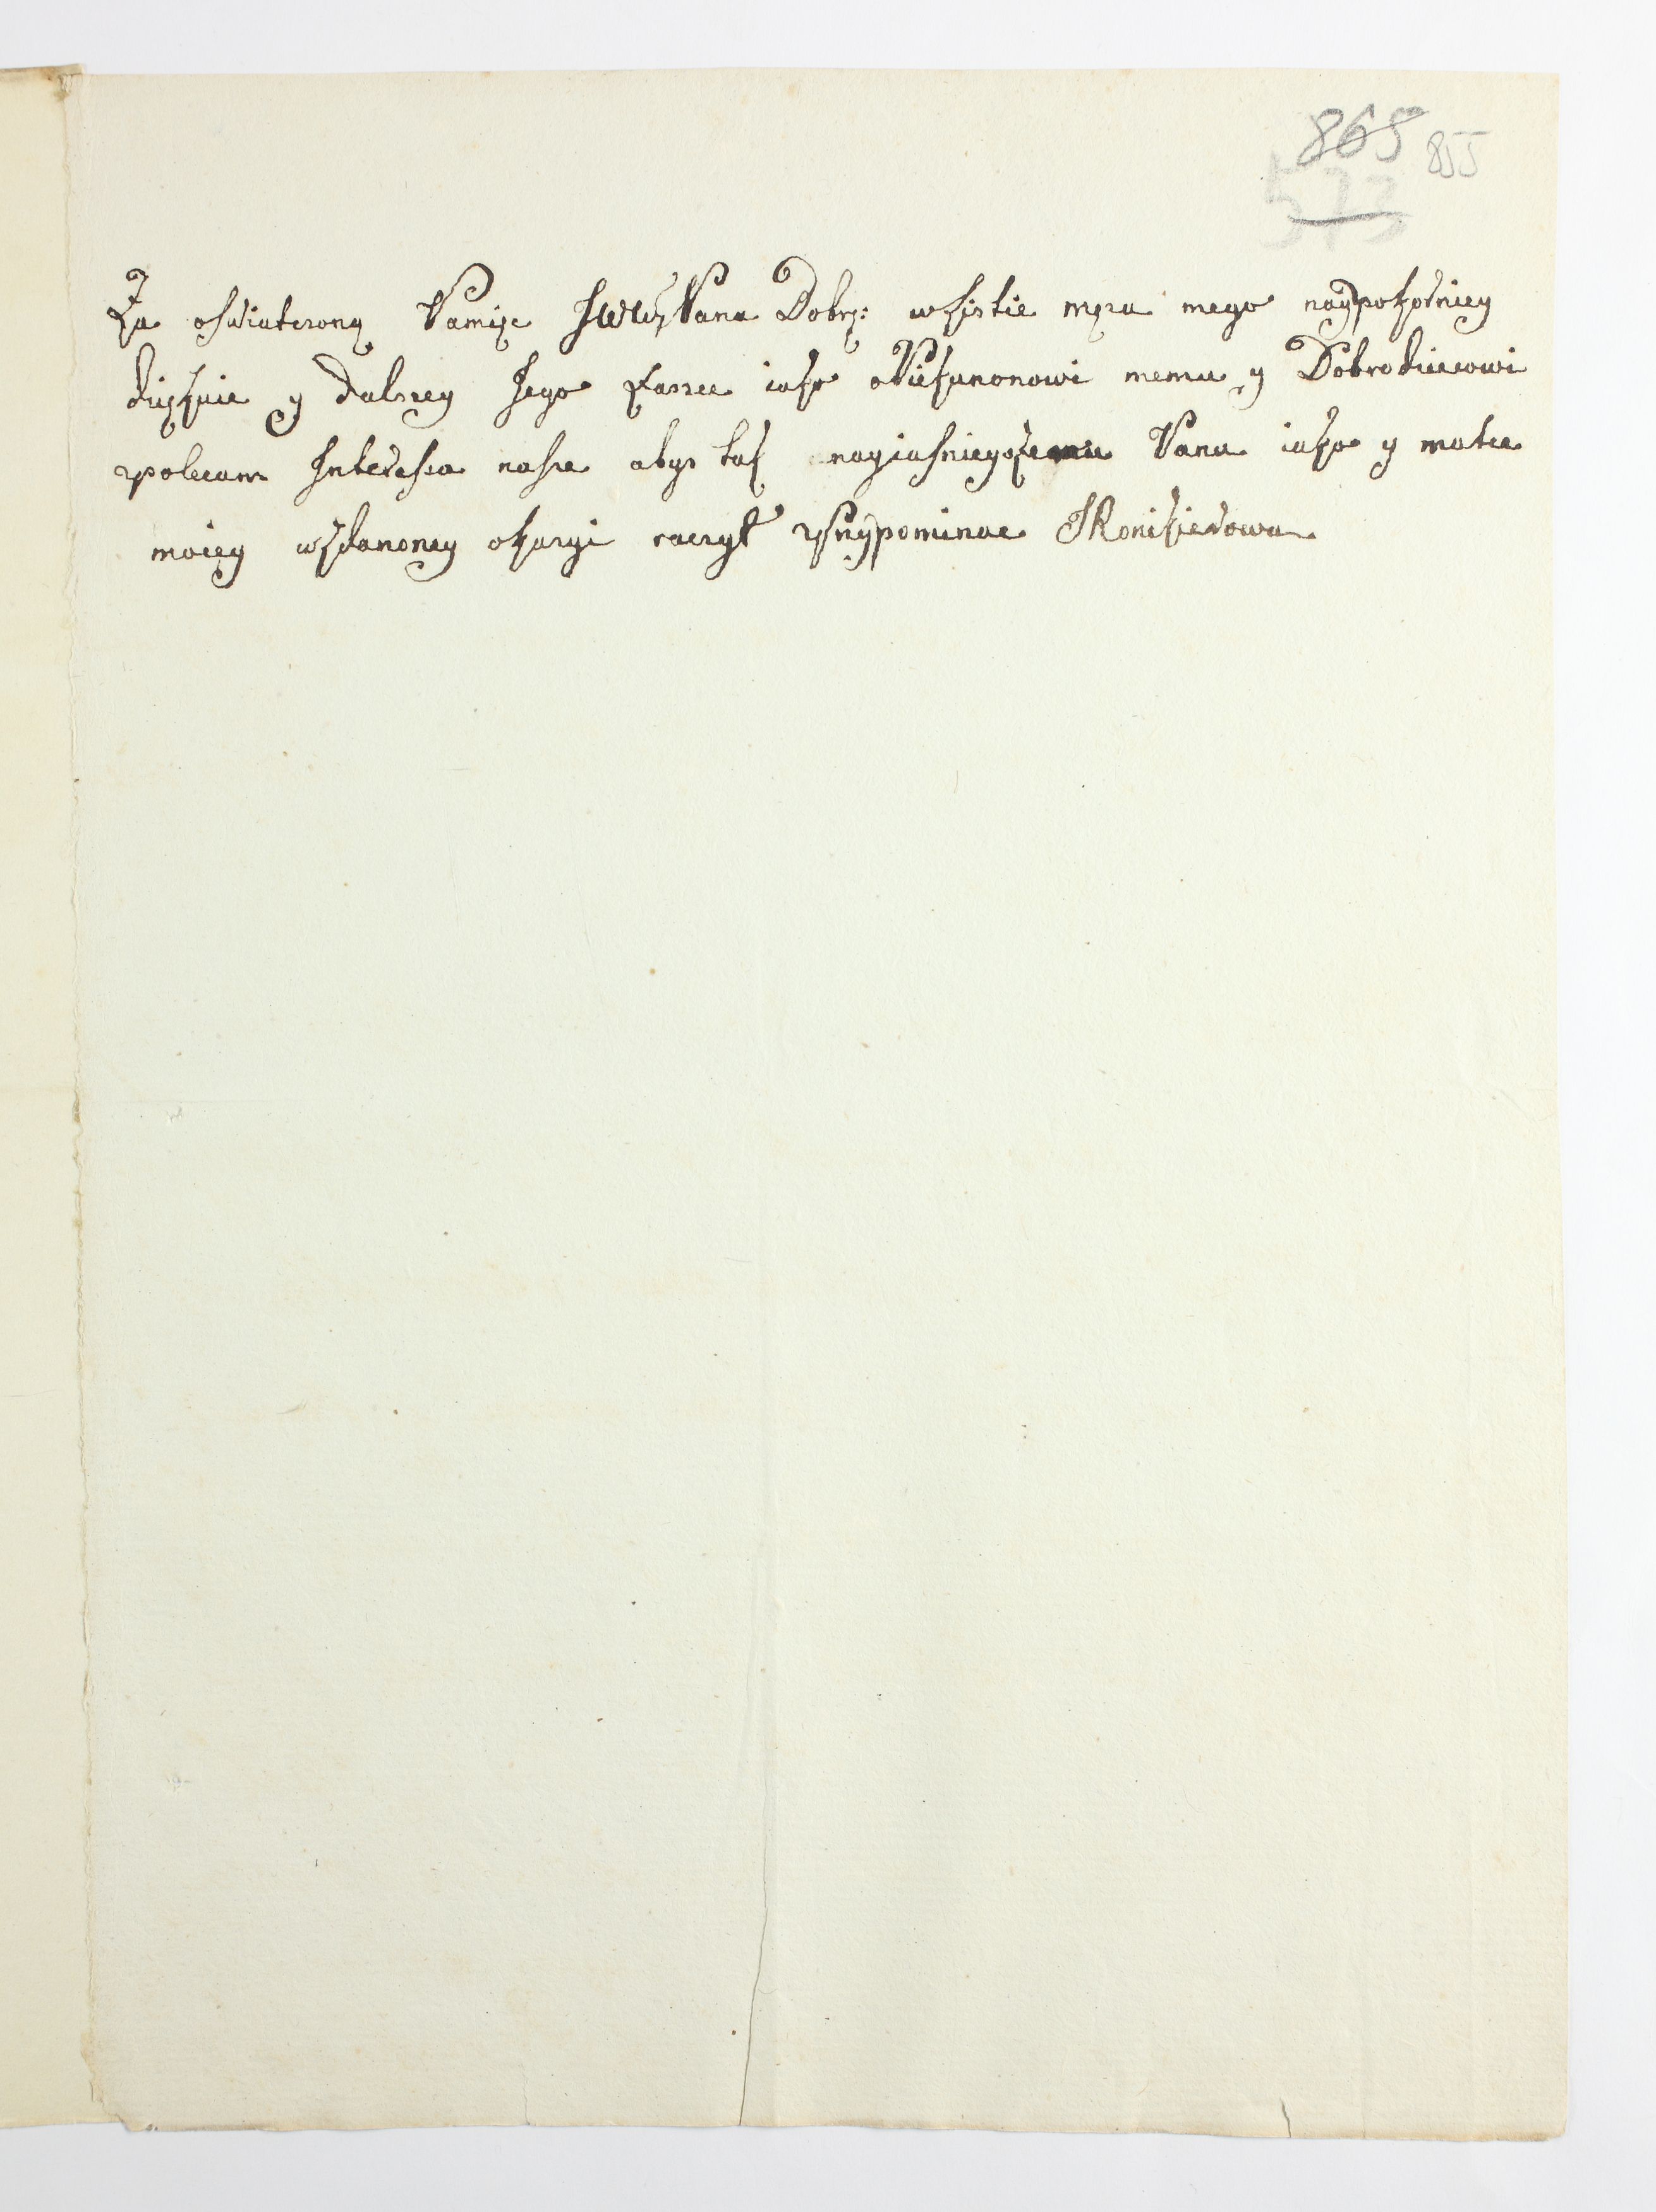 865 855
573
Za oswiatczoną Pamięc JWWPana Dobrz: wliscie męza mego naypokorniey
dziękuie y dalszey Jego łasce iako opiekunonowi memu y Dobrodzieiowi
polecam Interessa nasze abys tak nayiasnieyszemu Panu iako y matce
moiey wzdanoney okazyi raczył przypominac JKonikierowa